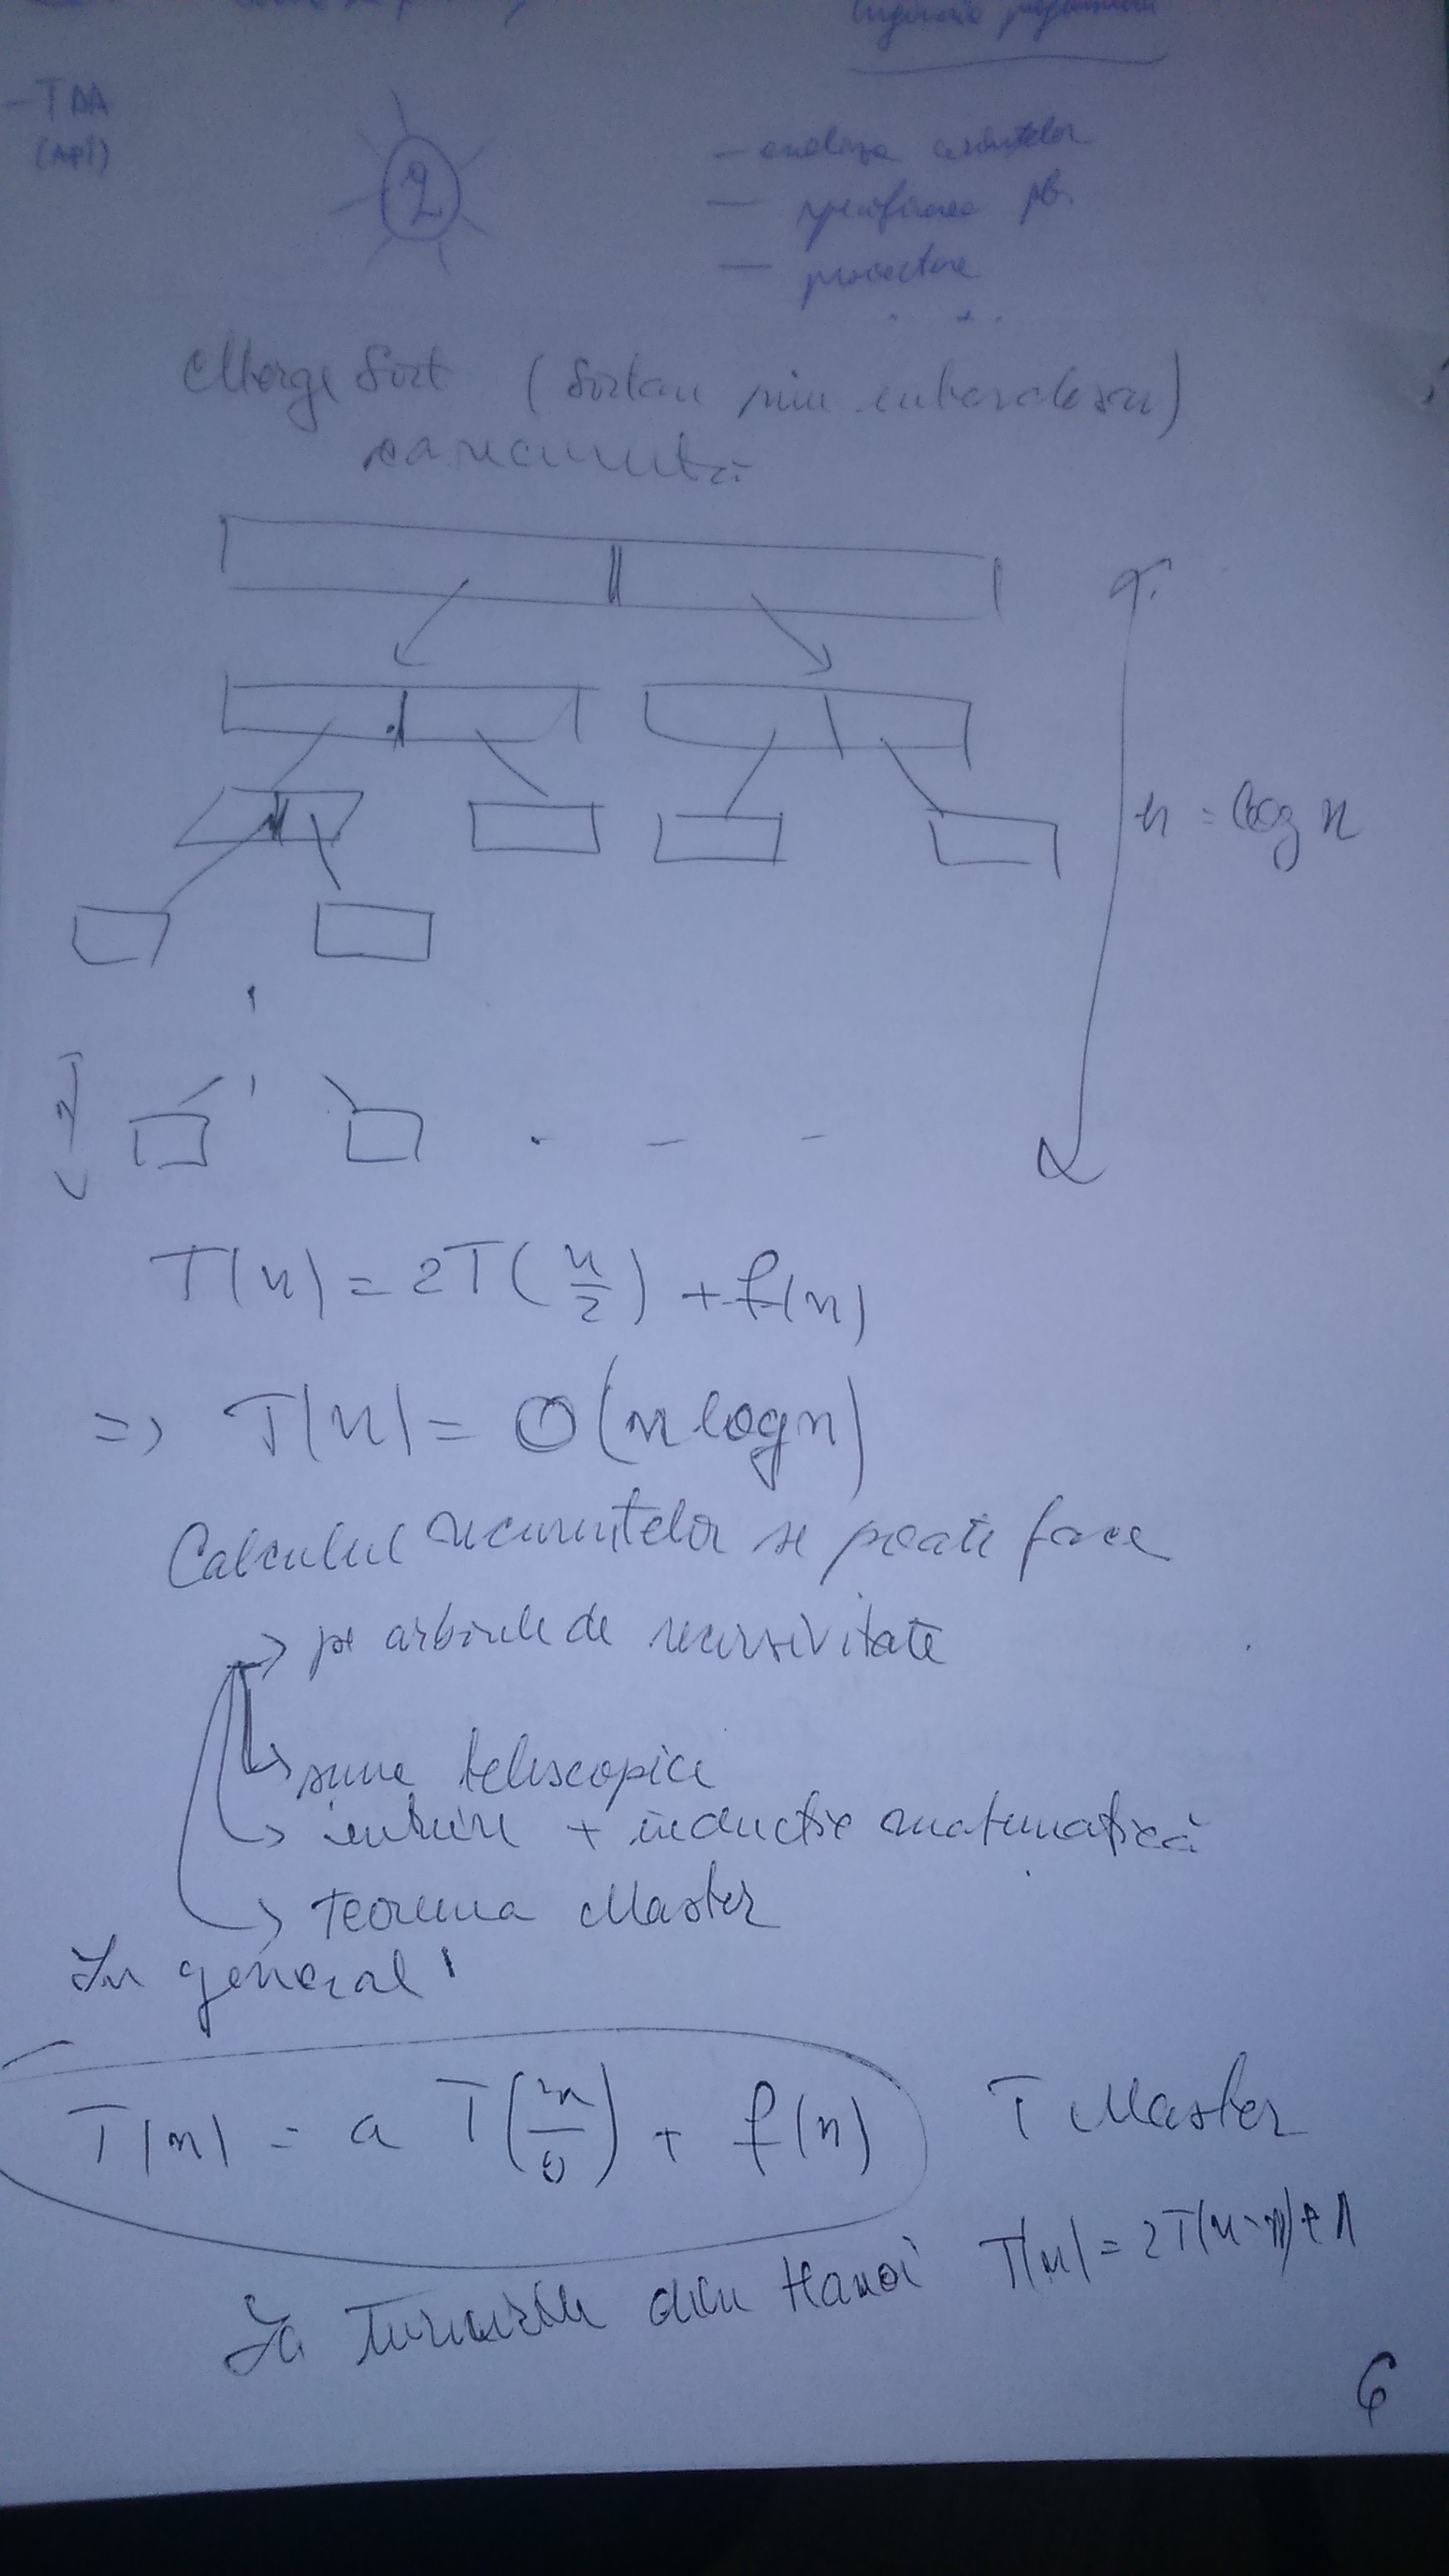 - TDA
(API)
2
- analiza cerintelor
- specificarea pb.
- proiectare
Merge Sort (Sortare prin interclasare)
h = log n
T(n) = 2T(n/2) + f(n)
=> T(n) = O(n log n)
Calculul recurențelor se poate face
-> pe arborele de recursivitate
-> sume telescopice
-> intuire + inducție matematică
-> Teorema Master
In general
T(n) = a T(n/b) + f(n) T Master
La Turnurile din Hanoi T(n) = 2T(n-1)+1
6